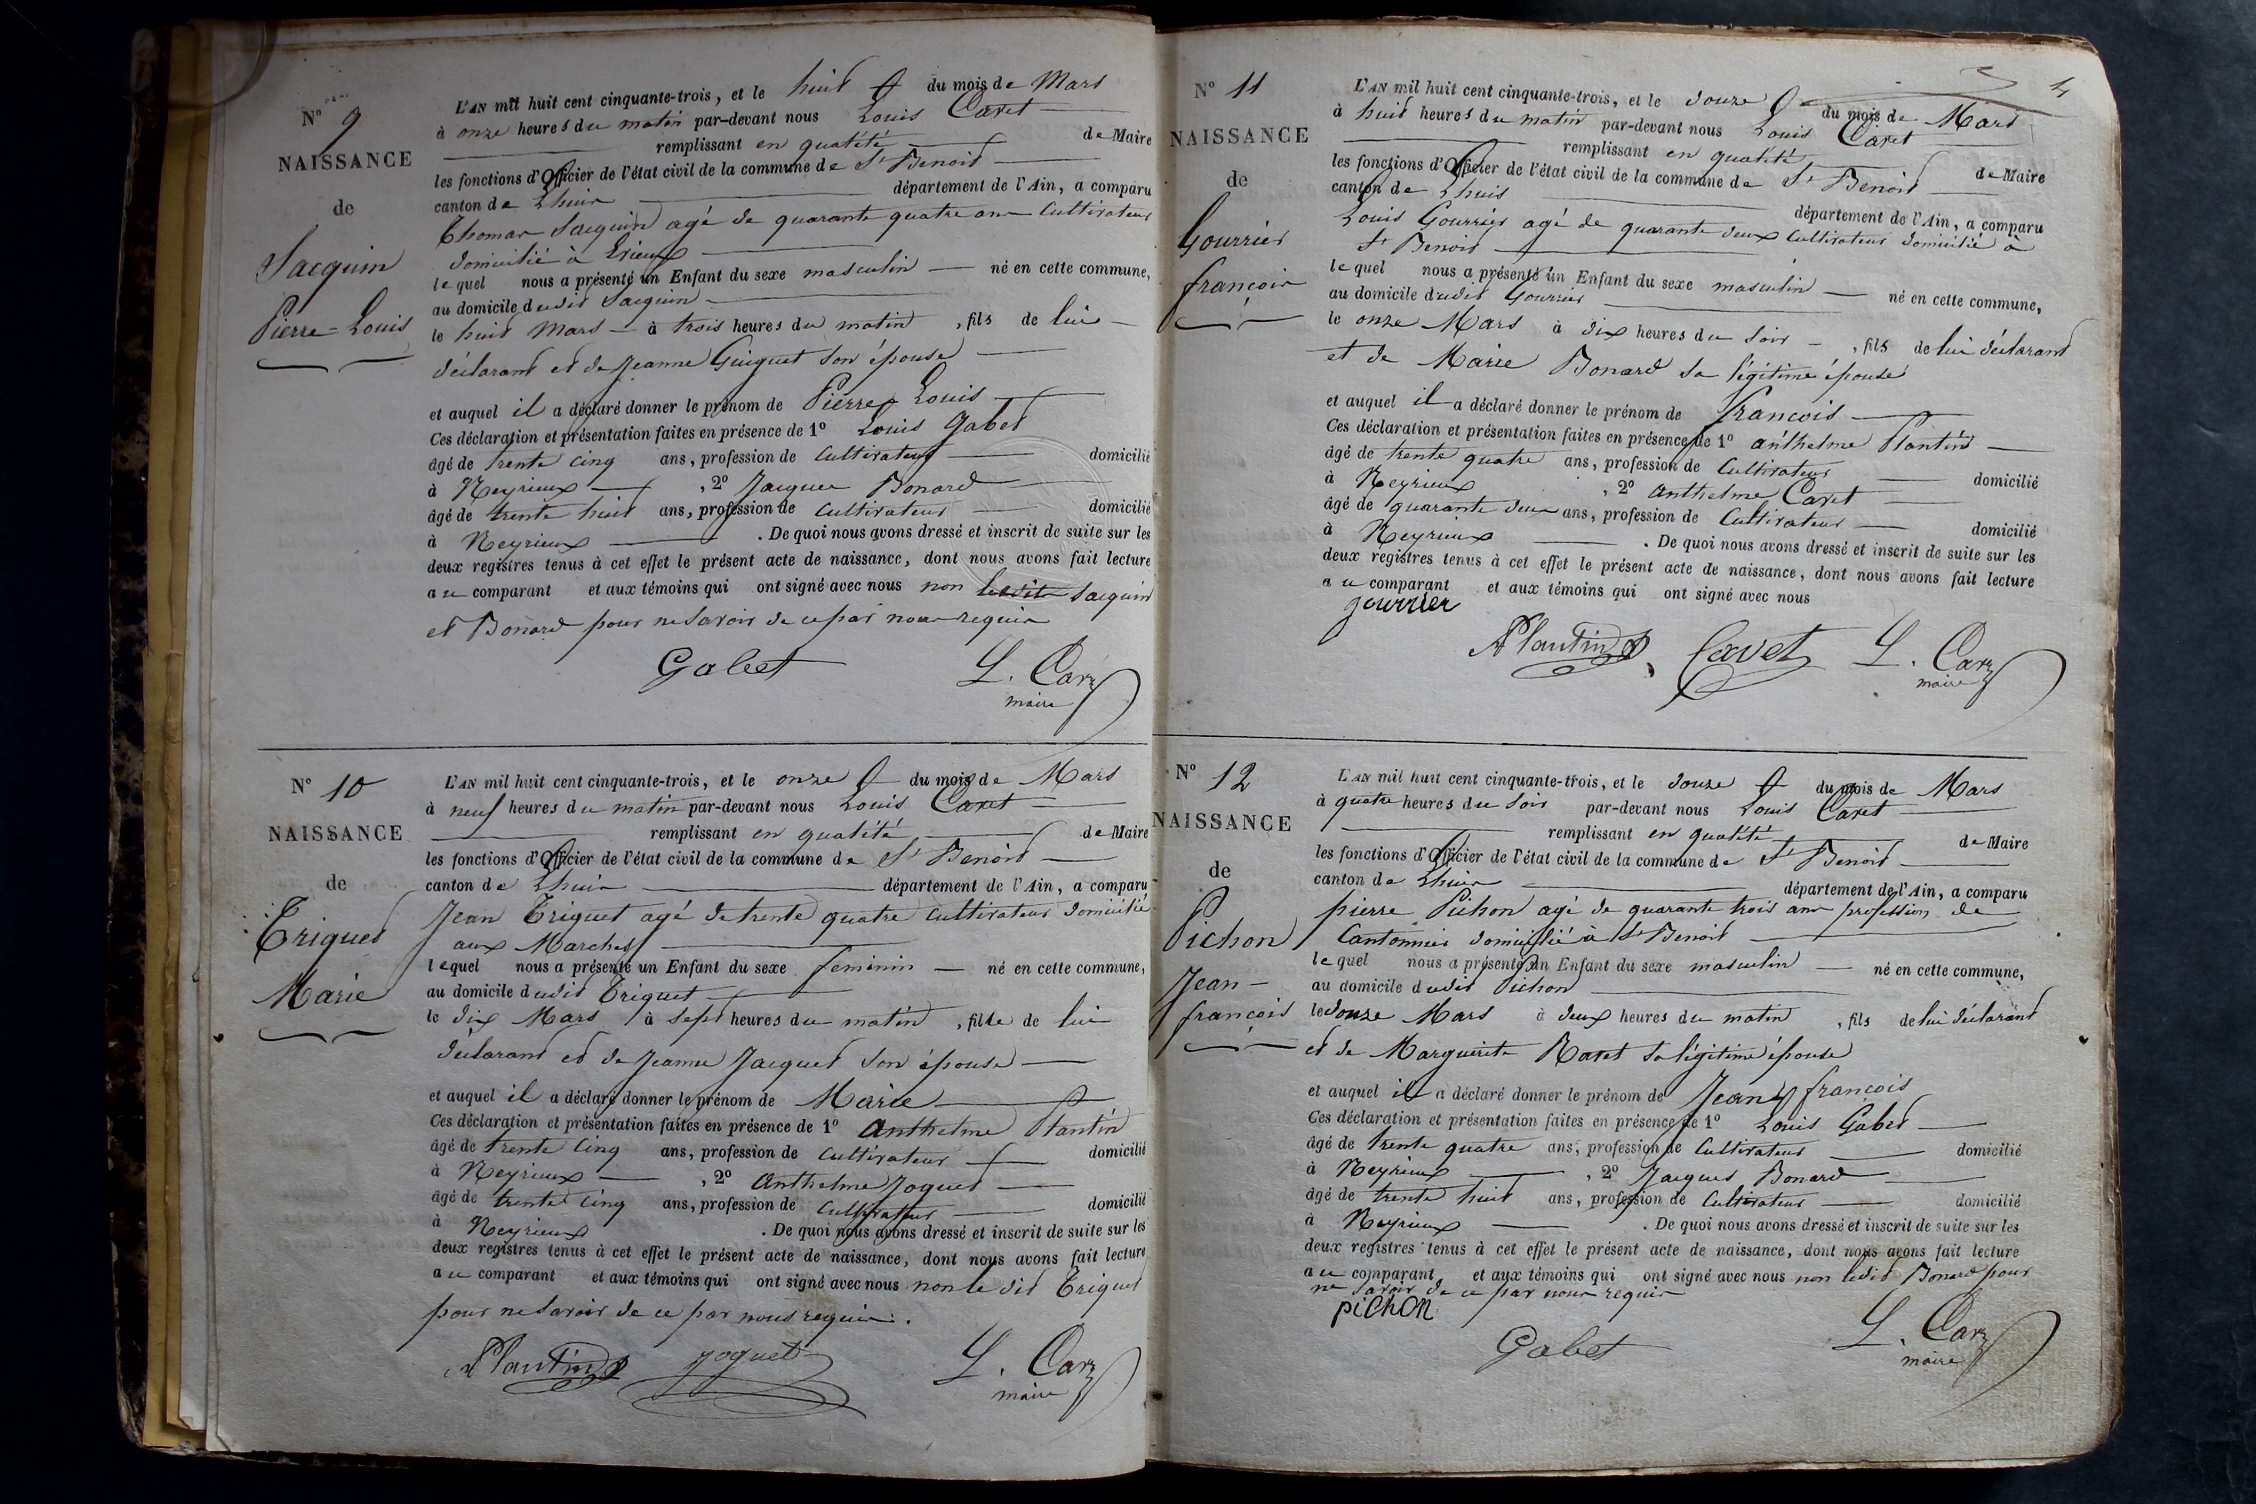 N° 9
NAISSANCE
de
Jacquin
Pierre-Louis
L'AN mil huit cent cinquante-trois, et le huit du mois de Mars
à onze heures du matin par-devant nous Louis Cavet
remplissant en qualité de Maire
les fonctions d'Officier de l'état civil de la commune de St Benoit
canton de Lhuis département de l'Ain, a comparu
Thomas Jacquin agé de quarante quatre ans Cultivateur
domicilié à
lequel nous a présenté un Enfant du sexe masculin né en cette commune,
au domicile dudit Jacquin
le huit Mars à trois heures du matin, fils de lui
déclarant et de Jeanne Guiguet son épouse
et auquel il a déclaré donner le prénom de Pierre-Louis
Ces déclaration et présentation faites en présence de 1° Louis Gabet
âgé de trente cinq ans, profession de Cultivateur domicilié
à Neyrieux, 2° Jacques Bonard
âgé de trente huit ans, profession de Cultivateur domicilié
à Neyrieux. De quoi nous avons dressé et inscrit de suite sur les
deux registres tenus à cet effet le présent acte de naissance, dont nous avons fait lecture
au comparant et aux témoins qui ont signé avec nous non Jacquin
et Bonard pour ne savoir de ce par nous requis
Gabet L. Cavet
maire
N° 10
NAISSANCE
de
Triquet
Marie
L'AN mil huit cent cinquante-trois, et le onze du mois de Mars
à neuf heures du matin par-devant nous Louis Cavet
remplissant en qualité de Maire
les fonctions d'Officier de l'état civil de la commune de St Benoit
canton de Lhuis département de l'Ain, a comparu
Jean Triquet agé de trente quatre Cultivateur domicilié
aux Marches
lequel nous a présenté un Enfant du sexe feminin né en cette commune,
au domicile dudit Triquet
le dix Mars à sept heures du matin, fille de lui
déclarant et de Jeanne Jacquet son épouse
et auquel il a déclaré donner le prénom de Marie
Ces déclaration et présentation faites en présence de 1° Anthelme Plantin
âgé de trente cinq ans, profession de Cultivateur domicilié
à Neyrieux, 2° Anthelme Joguet
âgé de trente cinq ans, profession de Cultivateur domicilié
à Neyrieux. De quoi nous avons dressé et inscrit de suite sur les
deux registres tenus à cet effet le présent acte de naissance, dont nous avons fait lecture
au comparant et aux témoins qui ont signé avec nous non le dit Triquet
pour ne savoir de ce par nous requis.
Plantin Joguet L. Cavet
maire
4
N° 11
NAISSANCE
de
Gourrier
françois
L'AN mil huit cent cinquante-trois, et le douze du mois de Mars
à huit heures du matin par-devant nous Louis Cavet
remplissant en qualité de Maire
les fonctions d'Officier de l'état civil de la commune de St Benoit
canton de Lhuis département de l'Ain, a comparu
Louis Gourrier agé de quarante deux Cultivateur domicilié à
St Benoit
lequel nous a présenté un Enfant du sexe masculin né en cette commune,
au domicile dudit Gourrier
le onze Mars à dix heures du soir, fils de lui déclarant
et de Marie Bonard sa légitime épouse
et auquel il a déclaré donner le prénom de françois
Ces déclaration et présentation faites en présence de 1° anthelme Plantin
âgé de trente quatre ans, profession de Cultivateur domicilié
à Neyrieux, 2° Anthelme Cavet
âgé de quarante deux ans, profession de Cultivateur domicilié
à Neyrieux. De quoi nous avons dressé et inscrit de suite sur les
deux registres tenus à cet effet le présent acte de naissance, dont nous avons fait lecture
au comparant et aux témoins qui ont signé avec nous
gourrier
Plantin Cavet L. Cavet
maire
N° 12
NAISSANCE
de
Pichon
Jean-
françois
L'AN mil huit cent cinquante-trois, et le douze du mois de Mars
à quatre heures du soir par-devant nous Louis Cavet
remplissant en qualité de Maire
les fonctions d'Officier de l'état civil de la commune de St Benoit
canton de Lhuis département de l'Ain, a comparu
pierre Pichon agé de quarante trois ans profession de
Cantonnier domicilié à St Benoit
lequel nous a présenté un Enfant du sexe masculin né en cette commune,
au domicile dudit Pichon
le douze Mars à deux heures du matin, fils de lui déclarant
et de Marguerite Ravet sa légitime épouse
et auquel il a déclaré donner le prénom de Jean françois
Ces déclaration et présentation faites en présence de 1° Louis Gabet
âgé de trente quatre ans, profession de Cultivateur domicilié
à Neyrieux, 2° Jacques Bonard
âgé de trente huit ans, profession de Cultivateur domicilié
à Neyrieux. De quoi nous avons dressé et inscrit de suite sur les
deux registres tenus à cet effet le présent acte de naissance, dont nous avons fait lecture
au comparant et aux témoins qui ont signé avec nous non ledit Bonard pour
ne savoir de ce par nous requis
pichon
Gabet L. Cavet
maire